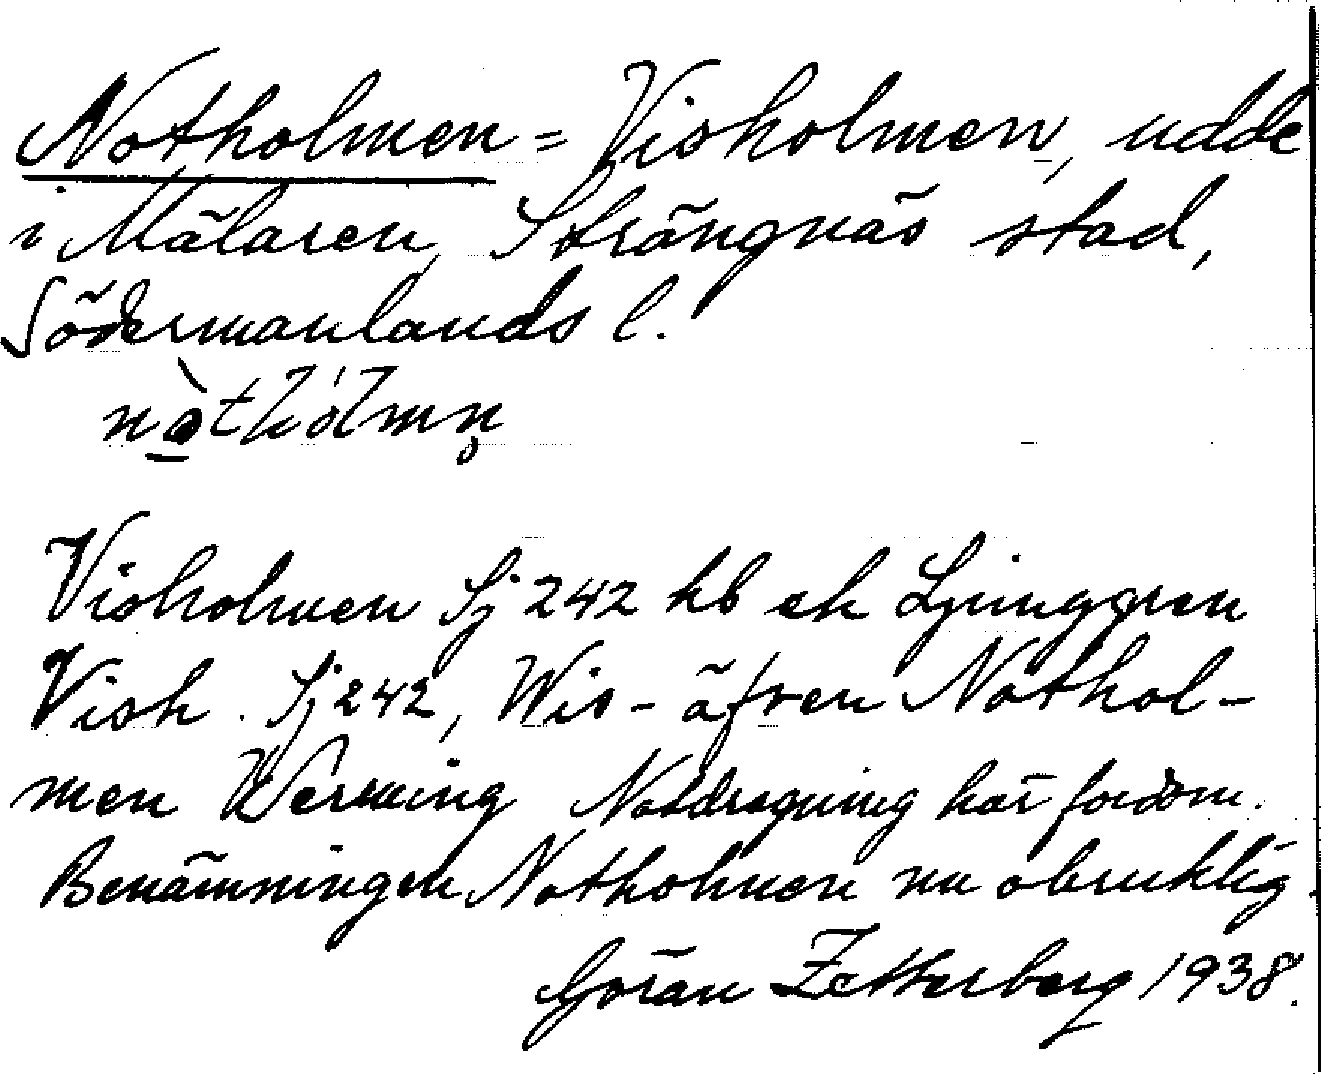 Notholmen = Visholmen, udde
i Mälaren, Strängnäs stad,
Södermanlands l.
nò̱thólmn̥
Visholmen Sj 242 hb ek Ljunggren
Vish. Sj 242, Wis- äfven Nothol-
men Werming Notdragning här fordom.
Benämningen Notholmen nu obruklig.
Göran Zetterberg 1938.